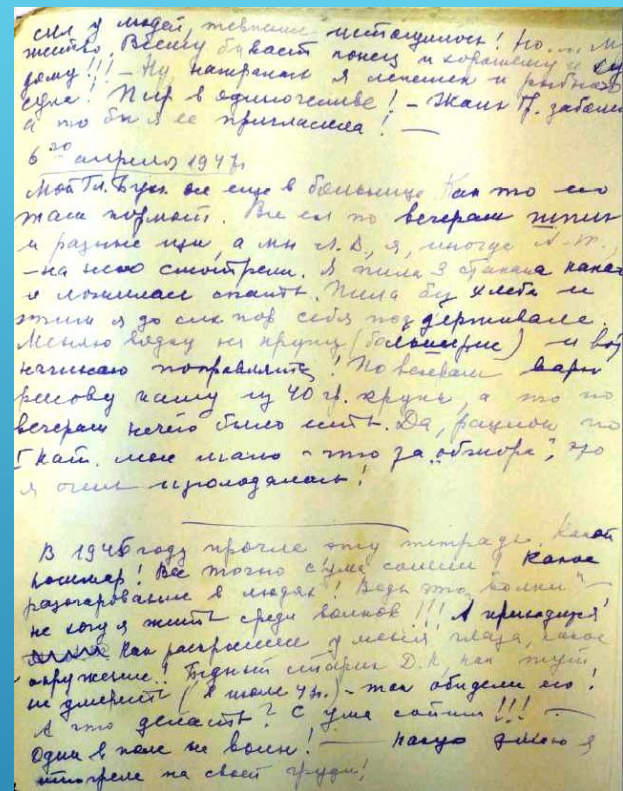 сил у людей, терпение истощилось! Но... м
жество. Всему бывает конец и хорошему и ху
дому!!! — Ну нажралась я лепешек и рыбного
супа! Пир в одиночестве! — Жаль Г. заболел
а то бы я ее пригласила! —
6го апреля 194
Мой Гл. Бух. все еще в больнице. Как то его
жаль
Все ел по вечерам
и разные щи, а мы Л. В., я, иногда А.
— на него смотрели. Я пила 3 стакана какао
и ложилась спать. Пила без хлеба и
этим я до сих пор себя поддерживала.
Меняю водку на крупу (больш) и вот
начинаю поправлять! По вечерам варю
рисову кашу из 40 гр. крупы, а то по
вечерам нечего было есть. Да, рацион по
I кат. мне мало — что за „обжора", но
я очень изголодалась!
В 1945 году прочла эту тетрадь. Какой
кошмар! Все точно с ума сошли! Какое
разочарование в людях! Ведь это „волки" —
не хочу я жить среди волков!!! А приходится!
Как раскрылись у меня глаза, какое
окружение!! Бедный старик Д. К., как
не умереть (в июле 4) — так обидели его!
А что делать? С ума сойти!!! —
Один в поле не воин! — какую змею я
отогрела на своей груди!